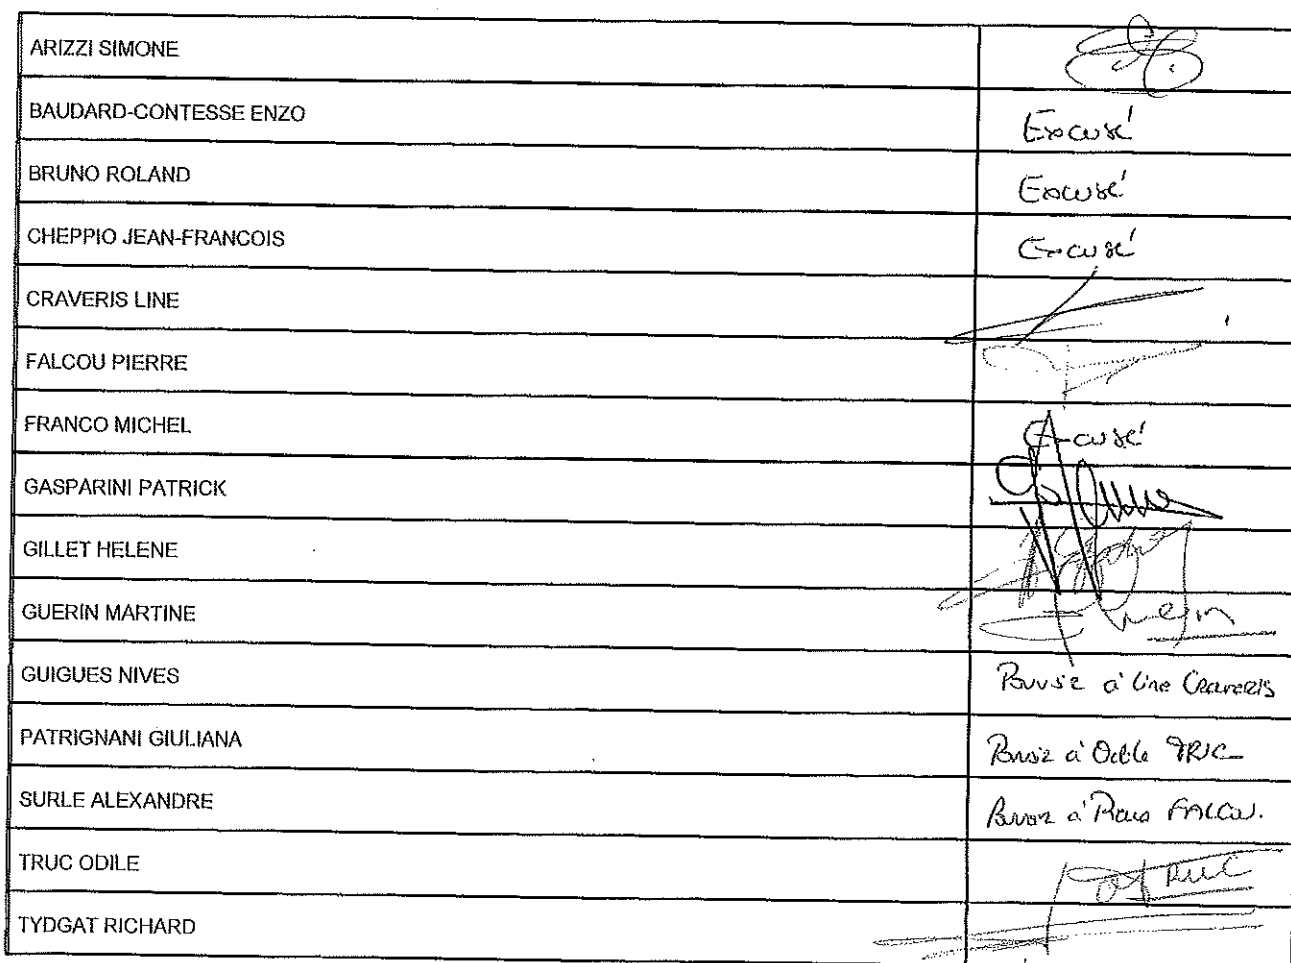 ARIZZI SIMONE
BAUDARD-CONTESSE ENZO Excusé
BRUNO ROLAND Excusé
CHEPPIO JEAN-FRANCOIS Excusé
CRAVERIS LINE
FALCOU PIERRE
FRANCO MICHEL Excusé
GASPARINI PATRICK
GILLET HELENE
GUERIN MARTINE
GUIGUES NIVES Pouvoir à Line Craveris
PATRIGNANI GIULIANA Pouvoir à Odile TRUC
SURLE ALEXANDRE Pouvoir à Pierre FALCOU.
TRUC ODILE TRUC
TYDGAT RICHARD